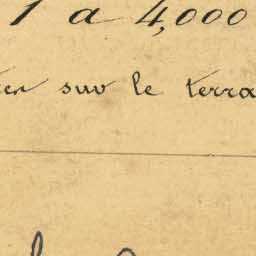 1 à 4,000
sur le terra